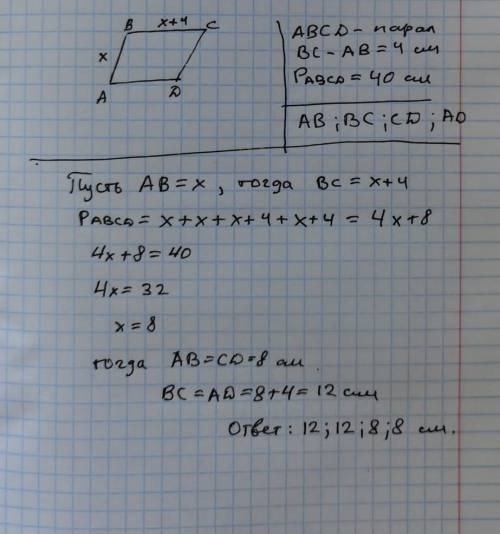 B x+4 C
x
A D
ABCD - парал
BC - AB = 4 см
PABCD = 40 см
AB ; BC ; CD ; AD
Пусть AB = x , тогда BC = x+4
PABCD = x + x + x + 4 + x + 4 = 4x + 8
4x + 8 = 40
4x = 32
x = 8
тогда AB = CD = 8 см
BC = AD = 8 + 4 = 12 см
Ответ : 12 ; 12 ; 8 ; 8 см.